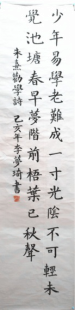 少年易學老難成一寸光陰不可輕未
覺池塘春草夢階前梧葉已秋聲
朱熹勸學詩 己亥年李夢琦書